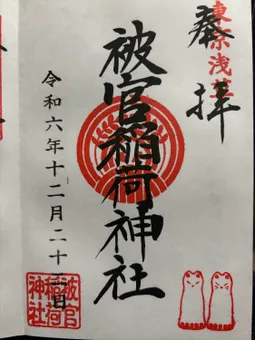 東京浅草
奉拝
被官稲荷神社
令和六年十二月二十三日
被官
稲荷
神社